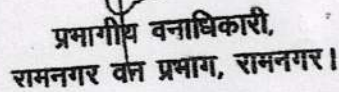 प्रभागीय वनाधिकारी,
रामनगर वन प्रभाग, रामनगर।